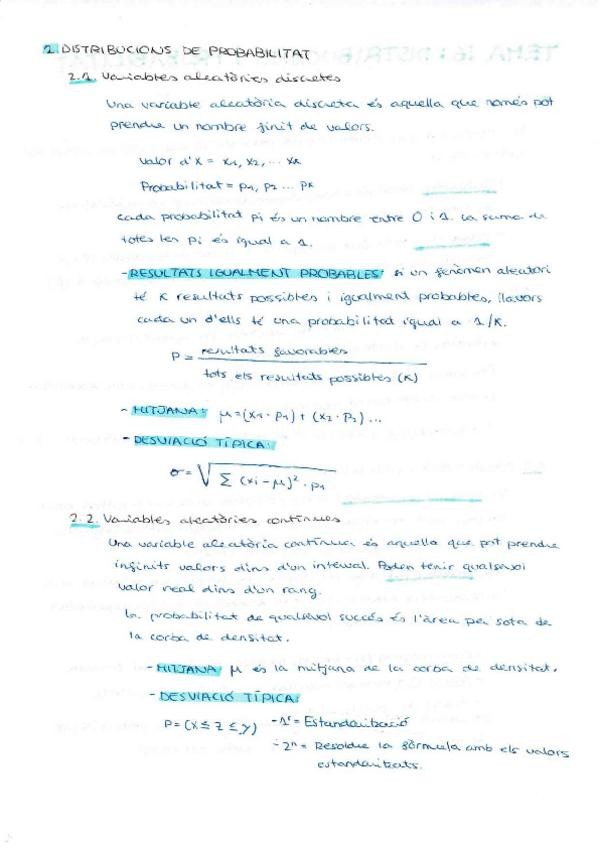 2. DISTRIBUCIONS DE PROBABILITAT
2.1. Variables aleatòries discretes
Una variable aleatòria discreta és aquella que només pot
prendre un nombre finit de valors.
Valor d'X = x1, x2, ... xk
Probabilitat = p1, p2 ... pk
Cada probabilitat pi és un nombre entre 0 i 1. La suma de
totes les pi és igual a 1.
- RESULTATS IGUALMENT PROBABLES: si un fenòmen aleatori
té K resultats possibles i igualment probables, llavors
cada un d'ells té una probabilitat igual a 1/K.
P = resultats favorables
tots els resultats possibles (K)
- MITJANA: μ = (x1 · p1) + (x2 · p2) ...
- DESVIACIÓ TÍPICA:
σ = √ Σ (xi - μ)² · p1
2.2. Variables aleatòries contínues
Una variable aleatòria contínua és aquella que pot prendre
infinits valors dins d'un interval. Poden tenir qualsevol
valor real dins d'un rang.
La probabilitat de qualsivol succés és l'àrea per sota de
la corba de densitat.
- MITJANA: μ és la mitjana de la corba de densitat.
- DESVIACIÓ TÍPICA:
P = (X ≤ Z ≤ y) - 1r = Estandarització
- 2n = Resoldre la fórmula amb els valors
estandaritzats.